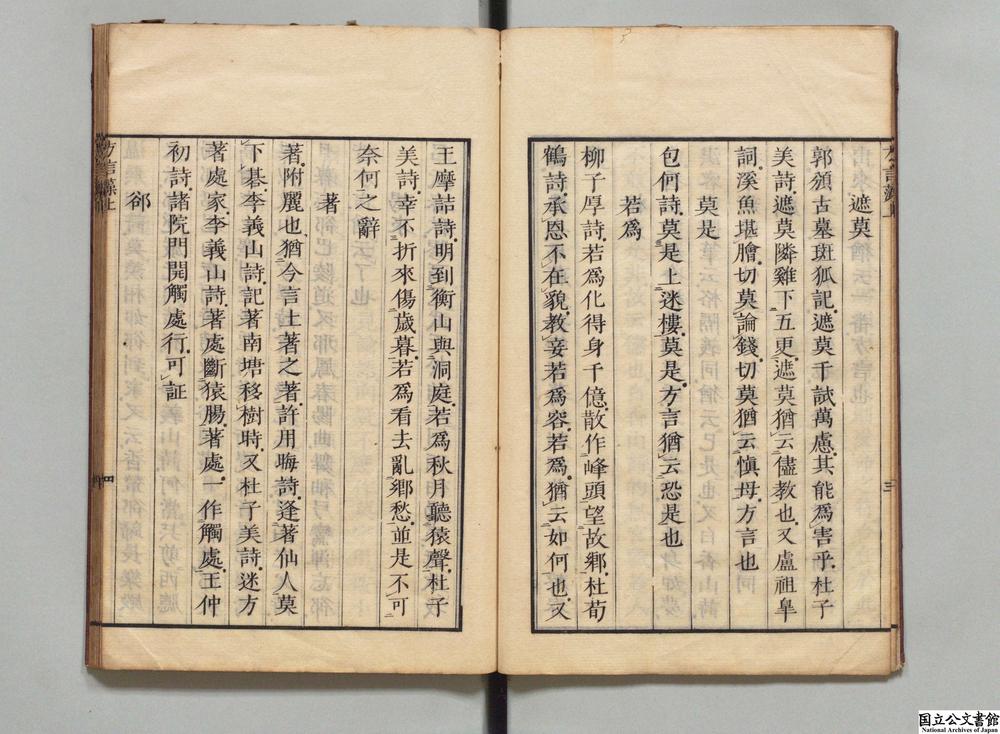 遮莫
郭頒古墓斑狐記遮莫千試萬慮其能爲害乎杜子
美詩遮莫隣雞下五更遮莫猶云儘教也又盧祖皐
詞溪魚堪膾切莫論錢切莫猶云愼毋方言也
莫是
包何詩莫是上迷樓莫是方言猶云恐是也
若爲
柳子厚詩若爲化得身千億散作峰頭望故鄉杜荀
鶴詩承恩不在貌教妾若爲容若爲猶云如何也又
三
王摩詰詩明到衡山與洞庭若爲秋月聽猿聲杜子
美詩幸不折來傷歲暮若爲看去亂鄉愁並是不可
奈何之辭
著
著附麗也猶今言土著之著許用晦詩逢著仙人莫
下棊李義山詩記著南塘移樹時又杜子美詩迷方
著處家李義山詩著處斷猿腸著處一作觸處王仲
初詩諸院門開觸處行可証
郤
方言藻上
四
国立公文書館
National Archives of Japan